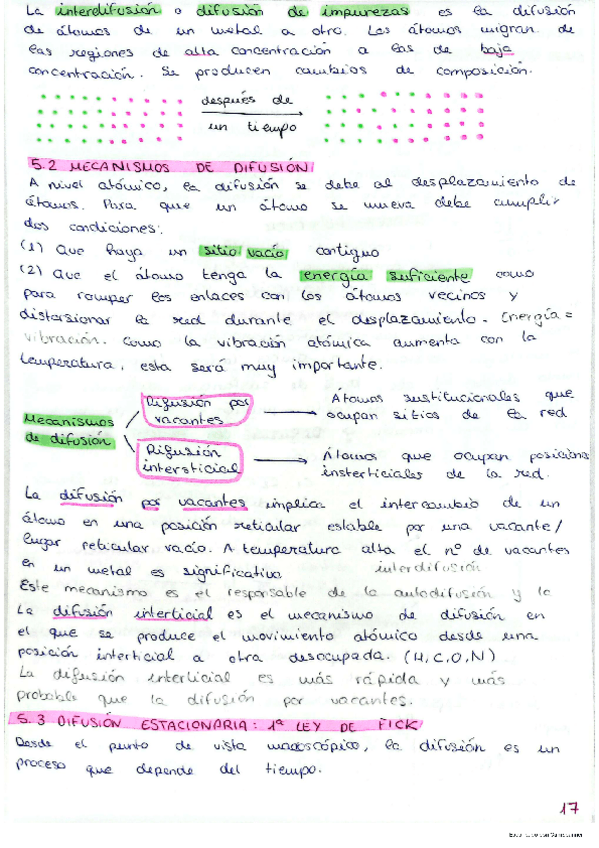 La interdifusión o difusión de impurezas es la difusión
de átomos de un metal a otro. Los átomos migran de
las regiones de alta concentración a las de baja
concentración. Se producen cambios de composición.
después de
un tiempo
5.2 MECANISMOS DE DIFUSIÓN
A nivel atómico, la difusión se debe al desplazamiento de
átomos. Para que un átomo se mueva debe cumplir
dos condiciones:
(1) Que haya un sitio vacío contiguo
(2) Que el átomo tenga la energía suficiente como
para romper los enlaces con los átomos vecinos y
distorsionar la red durante el desplazamiento. Energía =
vibración. Como la vibración atómica aumenta con la
temperatura, esta será muy importante.
Mecanismos
de difusión
Difusión por
vacantes
Átomos sustitucionales que
ocupan sitios de la red
Difusión
intersticial
Átomos que ocupan posiciones
insterticiales de la red.
La difusión por vacantes implica el intercambio de un
átomo en una posición reticular estable por una vacante/
lugar reticular vacío. A temperatura alta el nº de vacantes
en un metal es significativa
interdifusión
Este mecanismo es el responsable de la autodifusión y la
La difusión interticial es el mecanismo de difusión en
el que se produce el movimiento atómico desde una
posición interticial a otra desocupada. (H, C, O, N)
La difusión interticial es más rápida y más
probable que la difusión por vacantes.
5.3 DIFUSIÓN ESTACIONARIA: 1ª LEY DE FICK
Desde el punto de vista macroscópico, la difusión es un
proceso que depende del tiempo.
17